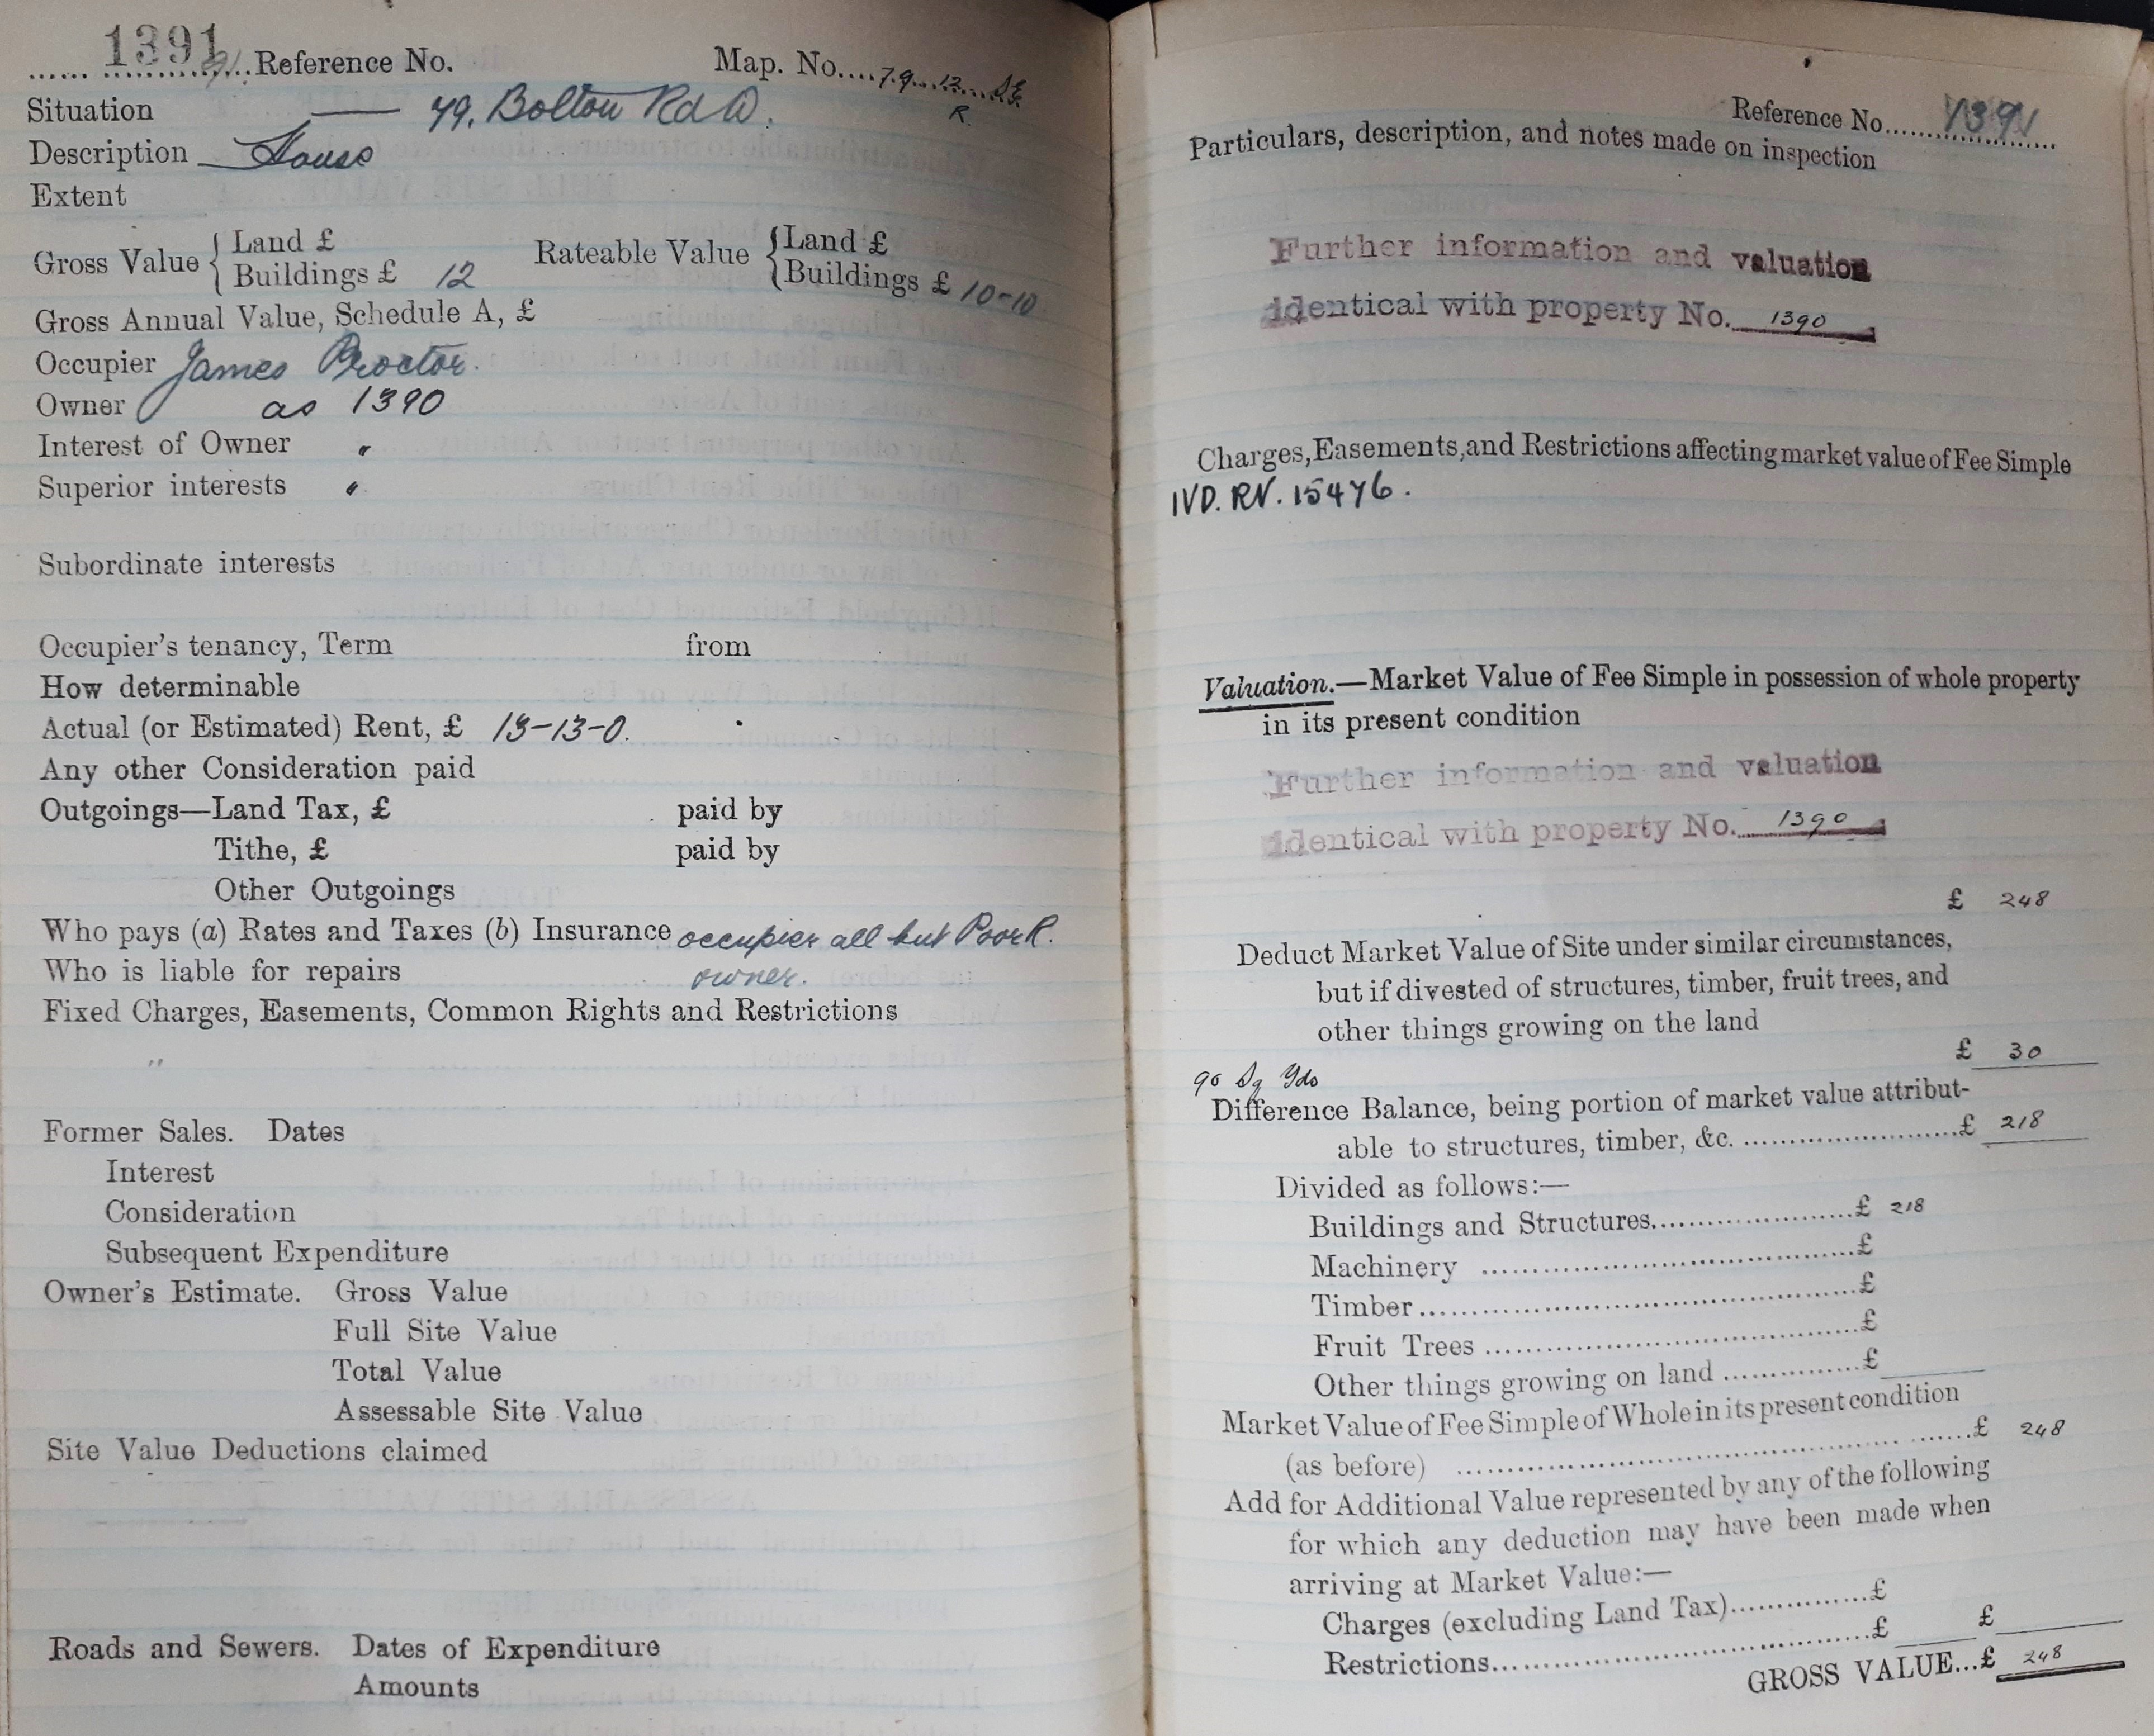 1391 Reference No. Map. No. 79.12. SE
R.
Situation — 49, Bolton Rd W.
Description House
Extent
Gross Value { Land £
Buildings £ 12
Rateable Value { Land £
Buildings £ 10-10
Gross Annual Value, Schedule A, £
Occupier James Proctor.
Owner as 1390
Interest of Owner "
Superior interests "
Subordinate interests
Occupier's tenancy, Term from
How determinable
Actual (or Estimated) Rent, £ 13-13-0.
Any other Consideration paid
Outgoings—Land Tax, £ paid by
Tithe, £ paid by
Other Outgoings
Who pays (a) Rates and Taxes (b) Insurance occupier all but Poor R.
Who is liable for repairs owner.
Fixed Charges, Easements, Common Rights and Restrictions
"
Former Sales. Dates
Interest
Consideration
Subsequent Expenditure
Owner's Estimate. Gross Value
Full Site Value
Total Value
Assessable Site Value
Site Value Deductions claimed
Roads and Sewers. Dates of Expenditure
Amounts
Reference No. 1391
Particulars, description, and notes made on inspection
Further information and valuation
identical with property No. 1390
Charges, Easements, and Restrictions affecting market value of Fee Simple
IVD. RV. 15476.
Valuation.—Market Value of Fee Simple in possession of whole property
in its present condition
Further information and valuation
identical with property No. 1390
£ 248
Deduct Market Value of Site under similar circumstances,
but if divested of structures, timber, fruit trees, and
other things growing on the land
£ 30
90 Sq Yds
Difference Balance, being portion of market value attribut-
able to structures, timber, &c. £ 218
Divided as follows:—
Buildings and Structures £ 218
Machinery £
Timber £
Fruit Trees £
Other things growing on land £
Market Value of Fee Simple of Whole in its present condition
(as before) £ 248
Add for Additional Value represented by any of the following
for which any deduction may have been made when
arriving at Market Value:—
Charges (excluding Land Tax) £
Restrictions £ £
GROSS VALUE...£ 248